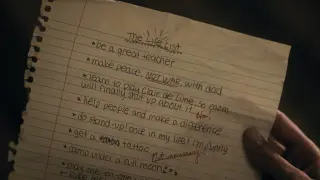 The Life List
• be a great teacher
• make peace, NOT WAR, with dad
• learn to play Clair de Lune. So mom
will finally shut up about it
• help people and make a difference
• do stand-up! once in my life! I'm funny
• get a tattoo
• camp under a full moon